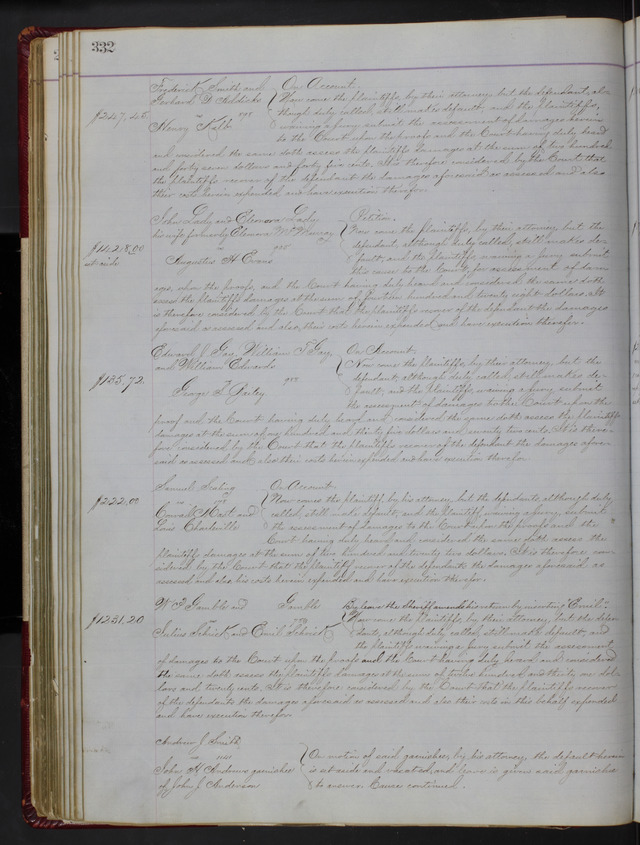 332
Frederick Smith and
On Account.
Gerhard D
Now come the plaintiffs, by their attorney, but the defendant, al-
$247.45
vs
though duly called, still makes default and the plaintiffs,
Henry Kalb
waiving a jury submit the assessment of damages herein
to the Court upon the proofs and the Court having duly heard
and considered the same doth assess the plaintiffs damages at the sum of two hundred
and forty seven dollars and forty five cents. It is therefore considered by the Court that
the plaintiffs recover of the defendant the damages aforesaid as assessed and also
their costs herein expended and have execution therefor.
John Lady and Eleonora Lady
Petition.
his wife formerly Eleonora McMurray
Now come the plaintiffs, by their attorney, but the
$1428.00
vs
defendant, although duly called, still makes de-
set aside
Augustus H Evans
fault and the plaintiffs waiving a jury submit
this cause to the Court for assessment of dam-
ages, upon the proofs, and the Court having duly heard and considered the same doth
assess the plaintiffs damages at the sum of fourteen hundred and twenty eight dollars. It
is therefore considered by the Court that the plaintiffs recover of the defendant the damages
aforesaid as assessed and also their costs herein expended and have execution therefor.
Edward J Gay, William T Gay,
On Account.
and William Edwards
Now come the plaintiffs, by their attorney, but the
vs
defendant, although duly called, still makes de-
$135.72
George T
fault, and the plaintiffs waiving a jury submit
the assessment of damages to the Court upon the
proof and the Court having duly heard and considered the same doth assess the plaintiffs
damages at the sum of one hundred and thirty five dollars and seventy two cents. It is there-
fore considered by the Court that the plaintiffs recover of the defendant the damages afore-
said as assessed and also their costs herein expended and have execution therefor
Samuel
On Account.
vs
Now comes the plaintiff, by his attorney, but the defendants, although duly
$222.00
Conrad Mast and
called, still make default, and the plaintiff, waiving a jury, submits
Louis Charleville
the assessment of damages to the Court upon the proofs and the
Court having duly heard and considered the same doth assess the
plaintiffs damages at the sum of two hundred and twenty two dollars. It is therefore con-
sidered by the Court that the plaintiff recover of the defendants the damages aforesaid as
assessed and also his costs herein expended and have execution therefor.
Gamble and Gamble
By leave the Sheriff amends his return by inserting "Emil".
$1231.20
vs
Now come the plaintiffs, by their attorney, but the defen-
Julius Schrick and Emil Schrick
dants, although duly called, still make default, and
the plaintiffs waiving a jury submit the assessment
of damages to the Court upon the proofs and the Court having duly heard and considered
the same doth assess the plaintiffs damages at the sum of twelve hundred and thirty one dol-
lars and twenty cents. It is therefore considered by the Court that the plaintiffs recover
of the defendants the damages aforesaid as assessed and also their costs in this behalf expended
and have execution therefor
Andrew J Smith
vs
On motion of said garnishee, by his attorney, the default herein
John H Andrews garnishee
is set aside and vacated, and leave is given said garnishee
of John J Anderson
to answer. Cause continued.